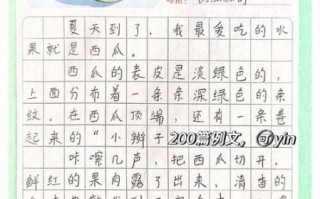 夏天到了，我最爱吃的水
果就是西瓜。
西瓜的表皮是淡绿色的，
上面分布着一条条深绿色的条
纹。在西瓜顶端，还有一条卷
起来的“小辫子
200篇例文，@yin
咔嚓几声，把西瓜切开，
鲜红的果肉露了出来，清香的